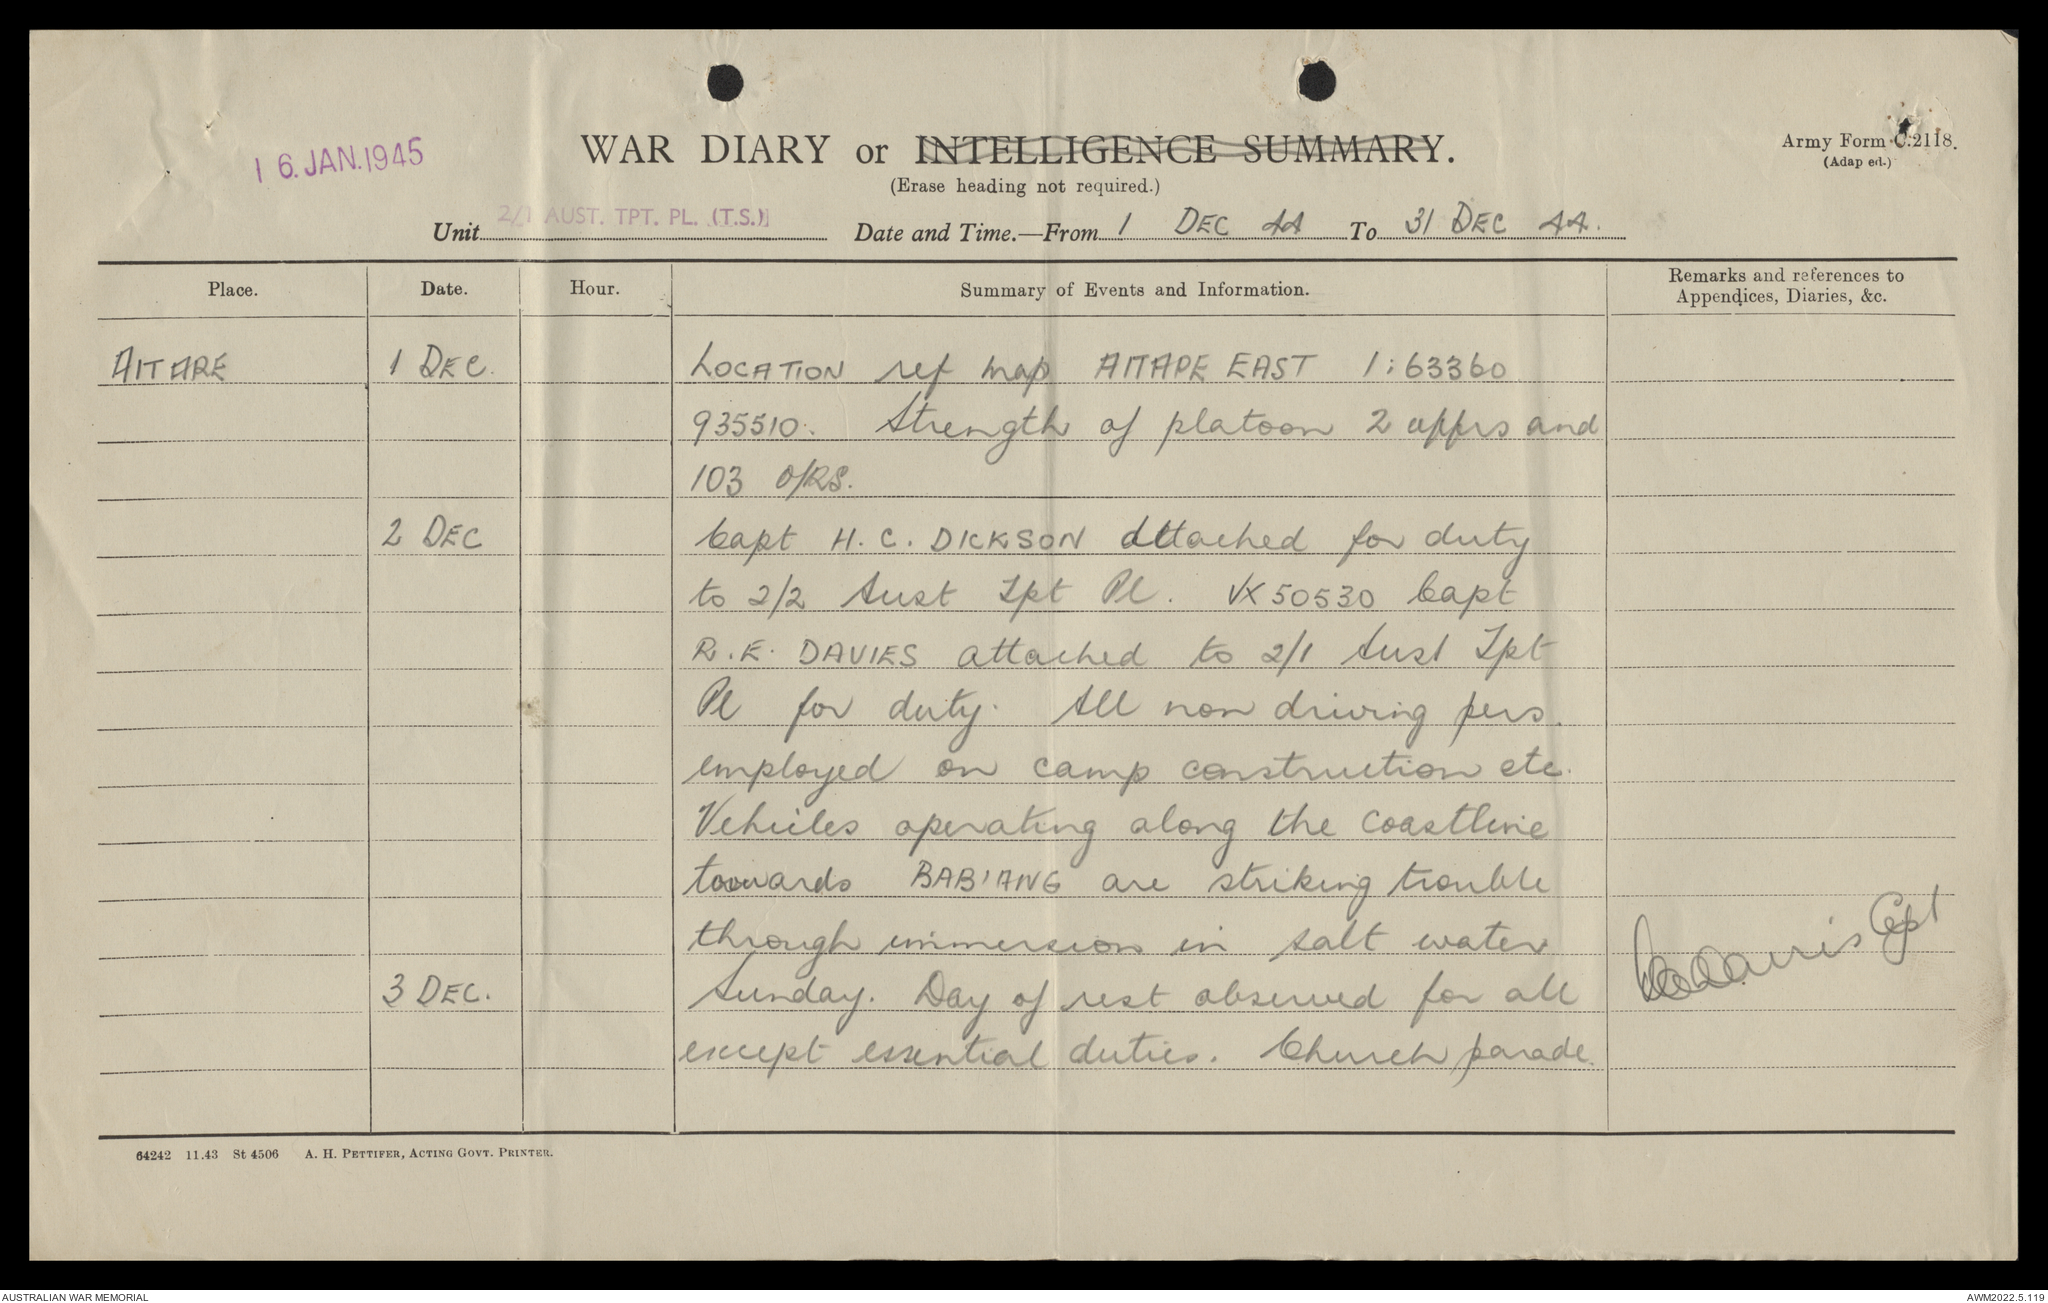 16. JAN. 1945
WAR DIARY or INTELLIGENCE SUMMARY.
(Erase heading not required.)
Army Form C.2118.
(Adap ed.)
Unit 2/1 AUST. TPT. PL. (T.S.) Date and Time.—From 1 DEC 44 To 31 DEC 44.
Place. Date. Hour. Summary of Events and Information. Remarks and references to Appendices, Diaries, &c.
AITAPE 1 DEC. LOCATION ref map AITAPE EAST 1:63360
935510. Strength of platoon 2 offrs and
103 O/RS.
2 DEC Capt H. C. DICKSON attached for duty
to 2/2 Aust Tpt Pl. VX50530 Capt
R. E. DAVIES attached to 2/1 Aust Tpt
Pl for duty. All non driving pers.
employed on camp construction etc.
Vehicles operating along the coastline
towards BABIANG are striking trouble
through immersion in salt water
3 DEC. Sunday. Day of rest observed for all
except essential duties. Church parade.
Capt
64242 11.43 St 4506 A. H. PETTIFER, ACTING GOVT. PRINTER.
AUSTRALIAN WAR MEMORIAL
AWM2022.5.119